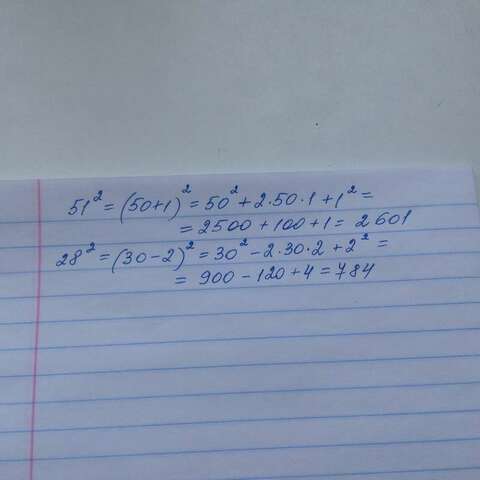 51² = (50+1)² = 50² + 2·50·1 + 1² =
= 2500 + 100 + 1 = 2601
28² = (30-2)² = 30² - 2·30·2 + 2² =
= 900 - 120 + 4 = 784